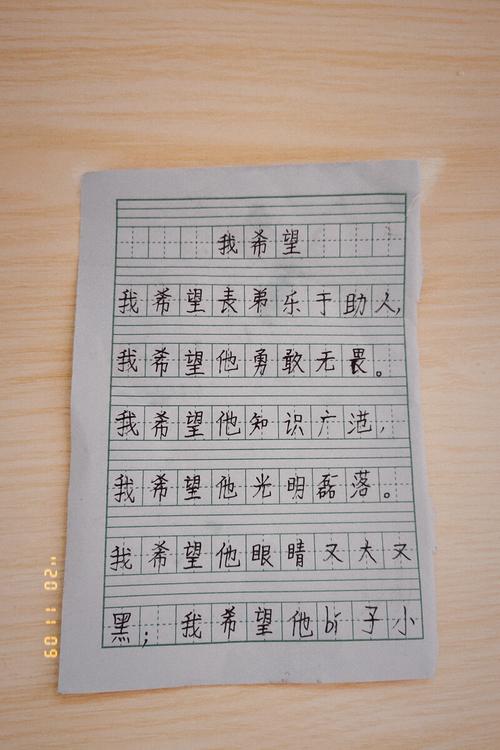 我希望
我希望表弟乐于助人,
我希望他勇敢无畏。
我希望他知识广范,
我希望他光明磊落。
我希望他眼睛又大又
黑; 我希望他bí子小
"02 11 09